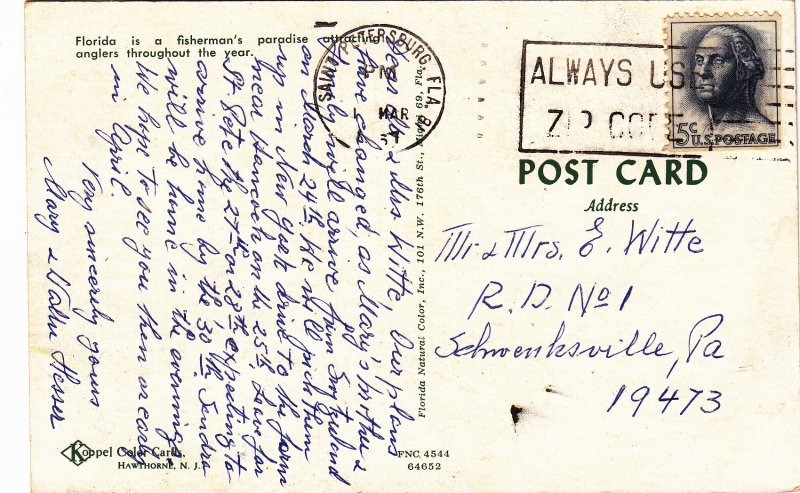 Florida is a fisherman's paradise attracting
anglers throughout the year.
Dear Mr & Mrs Witte, Our plans
have changed as Mary's mother &
family will arrive from England
on March 24th. We will meet them
up in New York drive to the farm
near Hancock on the 25th, leave for
St Pete the 27th or 28th expecting to
arrive home by the 30th. Sandra
will be home in the evening.
We hope to see you then or early
in April.
Very sincerely yours
Mary & Walter Hesser
Koppel Color Cards
HAWTHORNE, N. J.
FNC 4544
64652
Florida Natural Color, Inc., 101 N.W. 176th St., Miami 69, Fla.
SAINT PETERSBURG, FLA.
PM
MAR
ALWAYS USE
ZIP CODE
5¢
U.S. POSTAGE
POST CARD
Address
Mr & Mrs. E. Witte
R. D. No 1
Schwenksville, Pa
19473